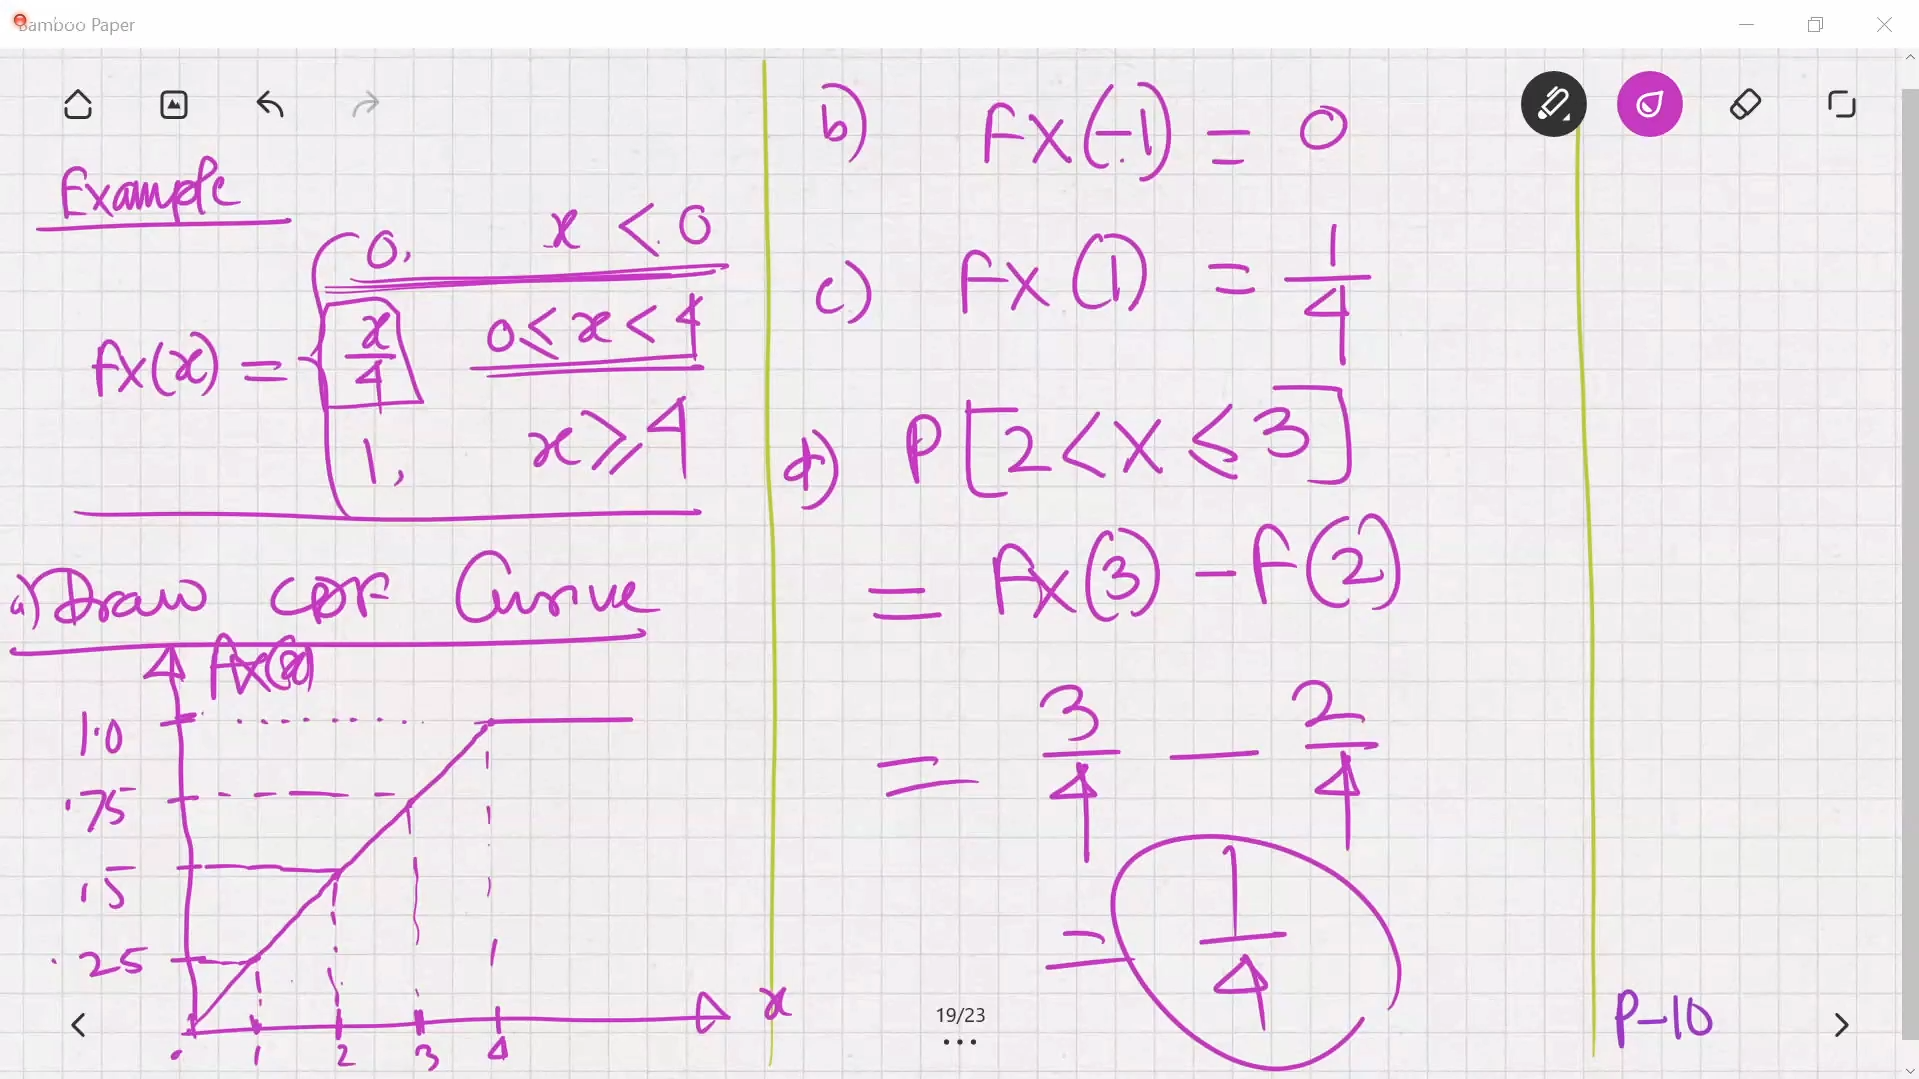 Bamboo Paper
Example
FX(x) =
0, x < 0
x/4 0 ≤ x < 4
1, x ≥ 4
a) Draw CDF Curve
FX(x)
1.0
.75
.5
.25
0 1 2 3 4
x
b) FX(-1) = 0
c) FX(1) = 1/4
d) P[2 < X ≤ 3]
= FX(3) - F(2)
= 3/4 - 2/4
= 1/4
19/23
P-10